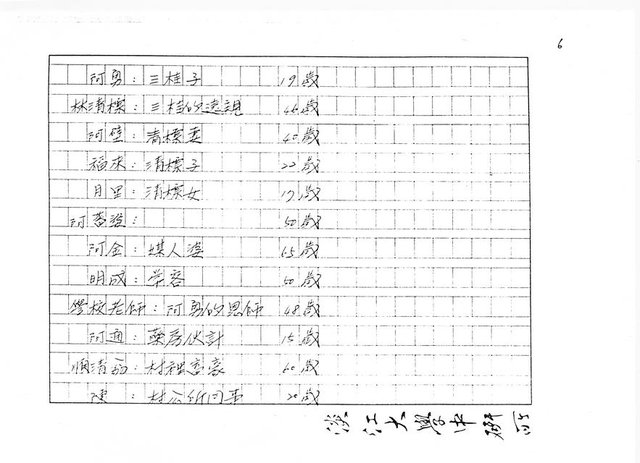 6
阿勇：三桂子 19歲
林清標：三桂的遠親 46歲
阿壁：清標妻 40歲
福來：清標子 22歲
月里：清標女 19歲
阿香婆： 50歲
阿金：媒人婆 65歲
明成：常客 50歲
學校老師：阿勇的恩師 48歲
阿通：藥房伙計 15歲
順清：村裡富豪 60歲
陳：村公所同 20歲
淡江大學中研所